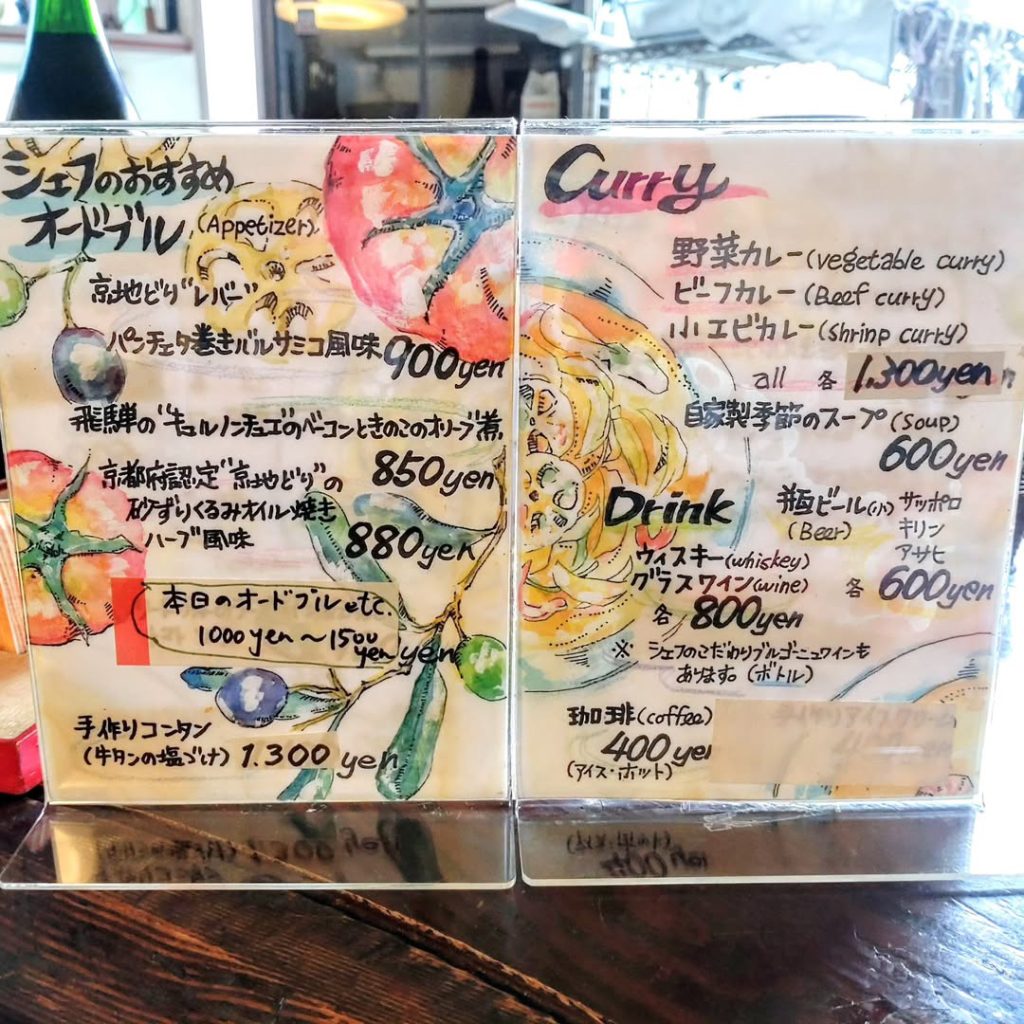 シェフのおすすめ
オードブル (Appetizer)
京地どり"レバー"
パンチェタ巻きバルサミコ風味 900yen
飛騨の"キュルノンチュエ"のベーコンときのこのオリーブ煮
850yen
京都府認定"京地どり"の
砂ずりくるみオイル焼き
ハーブ風味 880yen
本日のオードブル etc.
1000yen～1500yen
yen
手作りコンタン
(牛タンの塩づけ) 1.300 yen
Curry
野菜カレー(vegetable curry)
ビーフカレー(Beef curry)
小エビカレー(shrinp curry)
all 各 1.300yen
自家製季節のスープ(soup)
600yen
Drink
瓶ビール(小) サッポロ
(Beer) キリン
アサヒ
各 600yen
ウィスキー(whiskey)
グラスワイン(wine)
各 800yen
※ シェフのこだわりブルゴーニュワインも
あります。(ボトル)
珈琲(coffee)
400yen
(アイス・ホット)